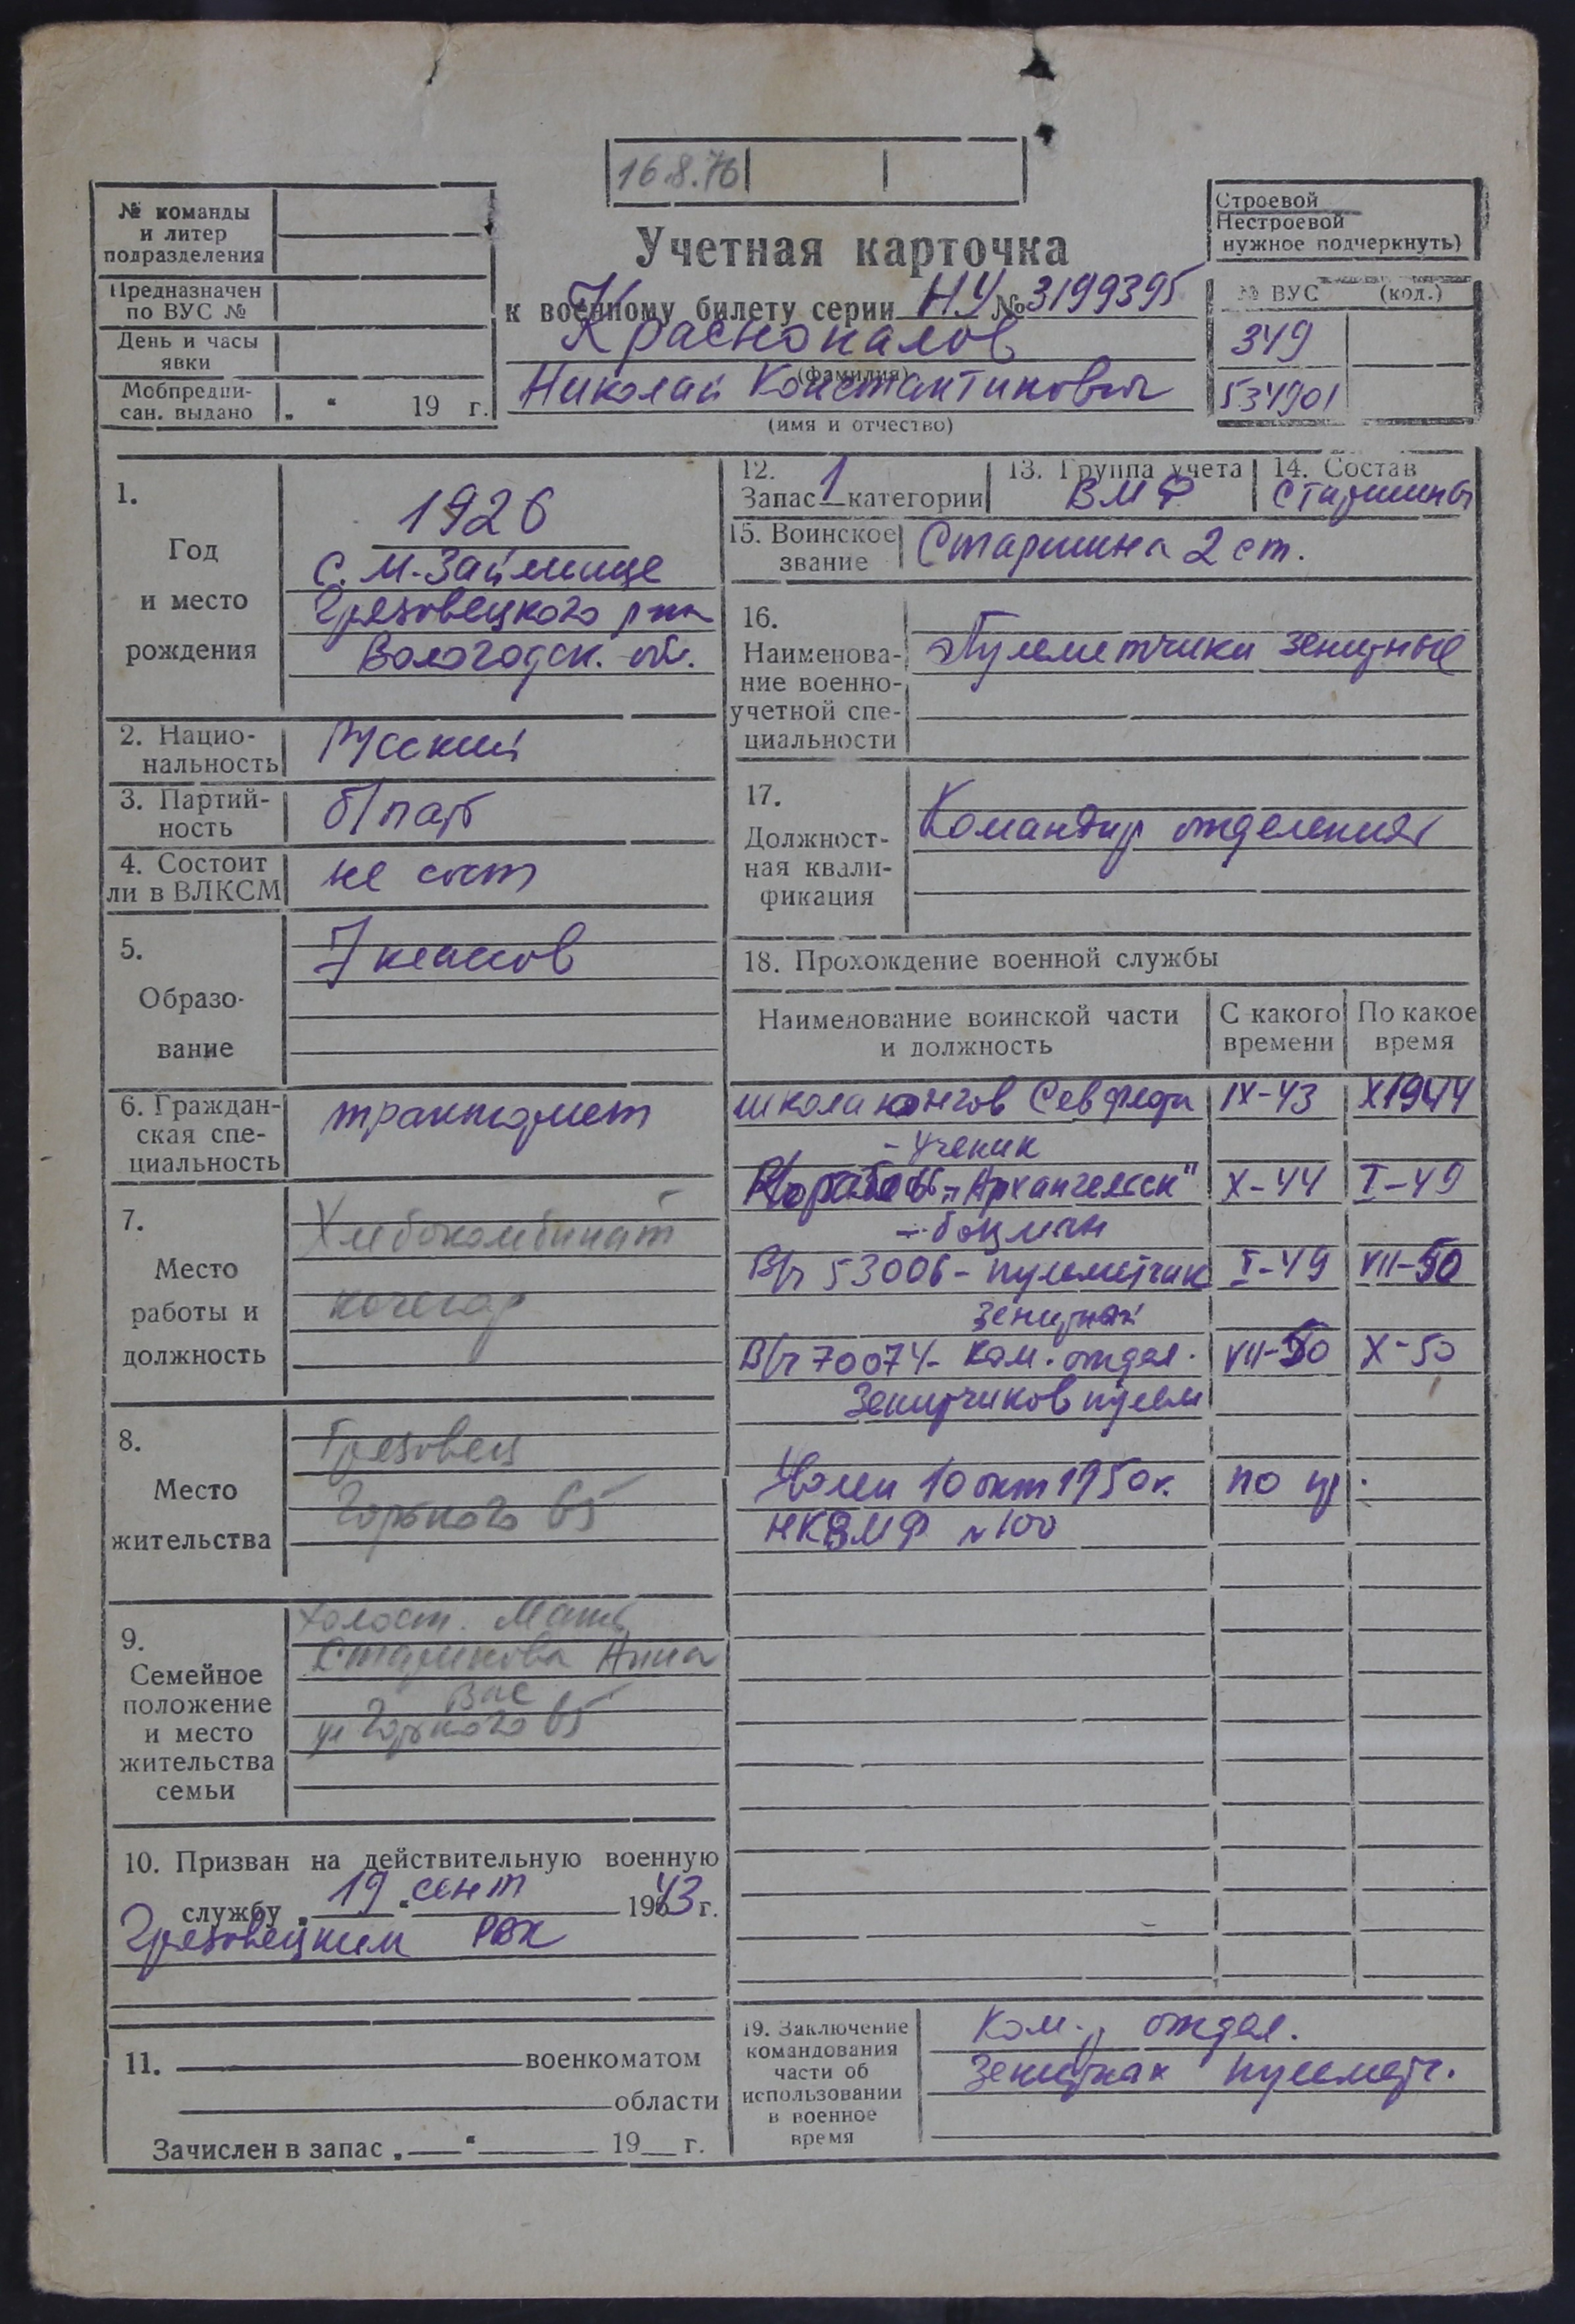 16.8.76
№ команды
и литер
подразделения
Предназначен
по ВУС №
День и часы
явки
Мобпредпи-
сан. выдано „ “ 19 г.
Учетная карточка
к военному билету серии НУ № 3199395
Красnопалов
(фамилия)
Николай Константинович
(имя и отчество)
Строевой
Нестроевой
нужное подчеркнуть)
№ ВУС (код.)
349
534901
1.
Год
и место
рождения
1926
с. М-Займище
Грязовецкого р-на
Вологодск. обл.
2. Нацио-
нальность
Русский
3. Партий-
ность
б/парт
4. Состоит
ли в ВЛКСМ
не сост
5.
Образо-
вание
7 классов
6. Граждан-
ская спе-
циальность
тракторист
7.
Место
работы и
должность
Хлебокомбинат
кочегар
8.
Место
жительства
Грязовец
Горького 65
9.
Семейное
положение
и место
жительства
семьи
Холост. Мать
Старикова Анна
Вас
ул Горького 65
10. Призван на действительную военную
службу „ 19 “ сент 1943 г.
Грязовецким РВК
11. военкоматом
области
Зачислен в запас „ “ 19 г.
12.
Запас 1 категории
13. Группа учета
ВМФ
14. Состав
Старшины
15. Воинское
звание
Старшина 2 ст.
16.
Наименова-
ние военно-
учетной спе-
циальности
Пулеметчики зенитные
17.
Должност-
ная квали-
фикация
Командир отделения
18. Прохождение военной службы
Наименование воинской части
и должность
С какого
времени
По какое
время
школа юнгов Сев флота IX-43 X 1944
- ученик
Корабль „Архангельск" X-44 I-49
- боцман
В/ч 53006 - пулеметчик I-49 VII-50
зенитный
В/ч 70074 - ком. отдел. VII-50 X-50
Зенитчиков пулем
Уволен 10 окт 1950 г. по пр.
НКВМФ № 100
19. Заключение
командования
части об
использовании
в военное
время
Ком-р отдел.
Зенитных пулеметч.